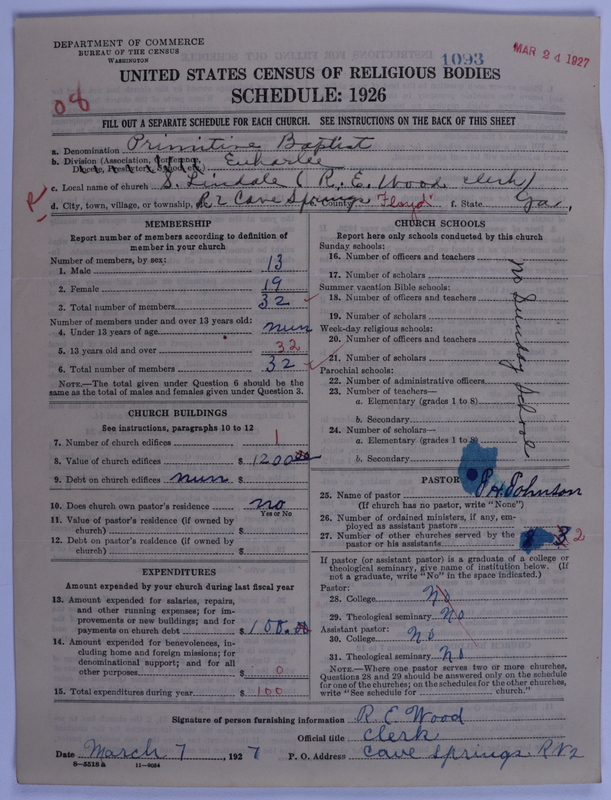 DEPARTMENT OF COMMERCE
BUREAU OF THE CENSUS
WASHINGTON
1093
MAR 24 1927
UNITED STATES CENSUS OF RELIGIOUS BODIES
SCHEDULE: 1926
08
FILL OUT A SEPARATE SCHEDULE FOR EACH CHURCH. SEE INSTRUCTIONS ON THE BACK OF THIS SHEET
a. Denomination Primitive Baptist
b. Division (Association, Conference, Diocese, Presbytery, Synod, etc.) Euharlee
c. Local name of church S. Lindale (R. E. Wood clerk)
d. City, town, village, or township, R 2 Cave Springs e. County Floyd f. State Ga,
MEMBERSHIP
Report number of members according to definition of
member in your church
Number of members, by sex:
1. Male 13
2. Female 19
3. Total number of members 32
Number of members under and over 13 years old:
4. Under 13 years of age nun
5. 13 years old and over 32
6. Total number of members 32
NOTE.—The total given under Question 6 should be the
same as the total of males and females given under Question 3.
CHURCH BUILDINGS
See instructions, paragraphs 10 to 12
7. Number of church edifices 1
8. Value of church edifices $ 1200 00
9. Debt on church edifices nun $
10. Does church own pastor's residence no
Yes or No
11. Value of pastor's residence (if owned by
church) $
12. Debt on pastor's residence (if owned by
church) $
EXPENDITURES
Amount expended by your church during last fiscal year
13. Amount expended for salaries, repairs,
and other running expenses; for im-
provements or new buildings; and for
payments on church debt $ 100.00
14. Amount expended for benevolences, in-
cluding home and foreign missions; for
denominational support; and for all
other purposes $ 0
15. Total expenditures during year $ 100
CHURCH SCHOOLS
Report here only schools conducted by this church
Sunday schools:
16. Number of officers and teachers
17. Number of scholars
Summer vacation Bible schools:
18. Number of officers and teachers
19. Number of scholars
Week-day religious schools:
20. Number of officers and teachers
21. Number of scholars
Parochial schools:
22. Number of administrative officers
23. Number of teachers—
a. Elementary (grades 1 to 8)
b. Secondary
24. Number of scholars—
a. Elementary (grades 1 to 8)
b. Secondary $
no Sunday School
PASTOR
25. Name of pastor J H Johnson
(If church has no pastor, write "None")
26. Number of ordained ministers, if any, em-
ployed as assistant pastors
27. Number of other churches served by the
pastor or his assistants 2
If pastor (or assistant pastor) is a graduate of a college or
theological seminary, give name of institution below. (If
not a graduate, write "No" in the space indicated.)
Pastor:
28. College No
29. Theological seminary No
Assistant pastor:
30. College No
31. Theological seminary No
NOTE.—Where one pastor serves two or more churches,
Questions 28 and 29 should be answered only on the schedule
for one of the churches; on the schedules for the other churches,
write "See schedule for church."
Signature of person furnishing information R E Wood
Official title clerk
Date March 7, 1927 P. O. Address Cave Springs R N 2
8—5518a 11—9084